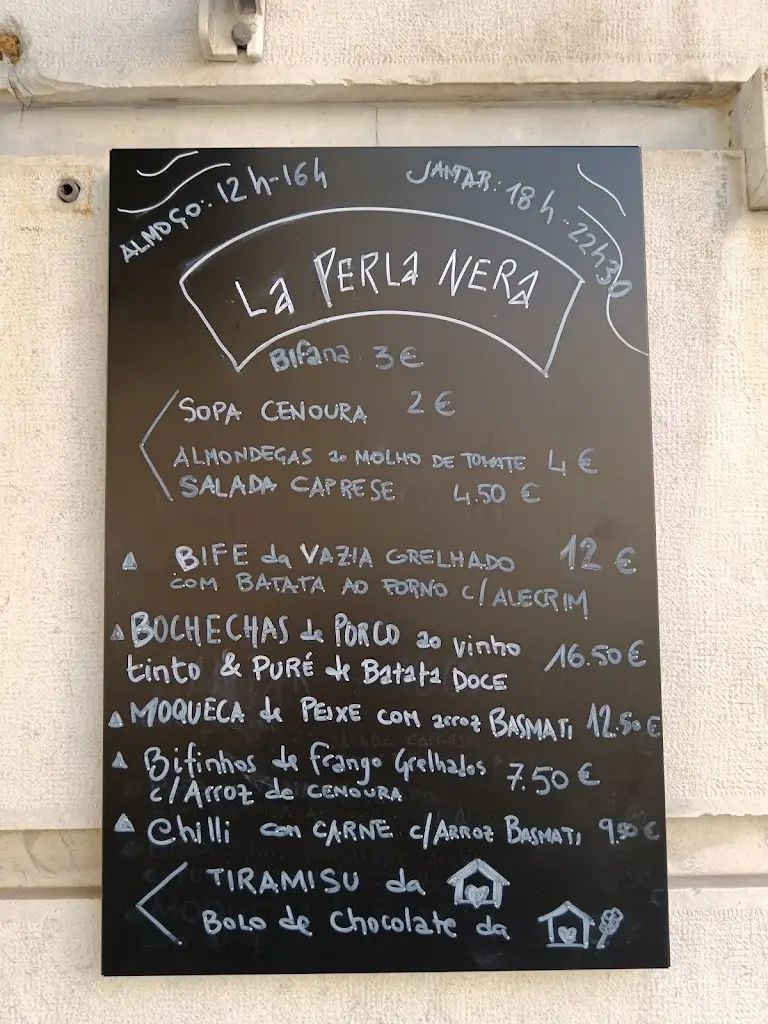 ALMOÇO: 12h-16h
JANTAR: 18h-22h30
LA PERLA NERA
Bifana 3€
SOPA CENOURA 2€
ALMONDEGAS ao MOLHO DE TOMATE 4€
SALADA CAPRESE 4.50€
BIFE da VAZIA GRELHADO 12€
COM BATATA AO FORNO c/ALECRIM
BOCHECHAS de PORCO ao vinho 16.50€
tinto & PURÉ de Batata DOCE
MOQUECA de PEIXE COM arroz BASMATi 12.50€
Bifinhos de frango Grelhados 7.50€
c/Arroz de CENOURA
Chilli com CARNE c/ARROZ BASMATi 9.50€
TIRAMISU da
BOLO de Chocolate da